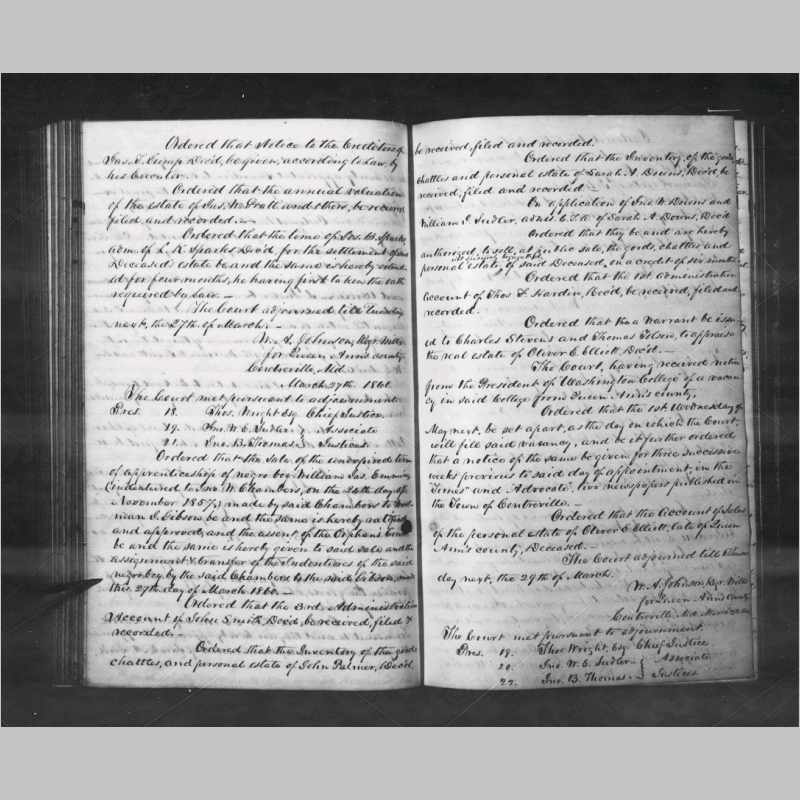 Ordered that Notice to the Creditors of
Jas. T. Crump Decd, be given, according to Law, by
his Executor.
Ordered that the annual valuation
of the estate of Jas. W. Pratt and others, be received
filed and recorded. —
Ordered that the time of Jos. W. Sparks
adm. of L. R. Sparks Decd, for the settlement of said
Deceased's estate be and the same is hereby extend
ed for four months, he having first taken the oath
required by Law. —
The Court adjourned till Tuesday
next, the 27th of March. —
W. A. Johnson, Regr. Wills
for Queen Ann's county,
Centreville, Md.
March 27th 1860.
The Court met pursuant to adjournment.
Pres. 18. Thos. Wright Esq Chief Justice.
19. Jno. W. E. Sudler } Associate
21. Jno. B. Thomas } Justices.
Ordered that the Sale of the unexpired term
of apprenticeship of negro boy William Jas. Emming
(indentured to Jno. W. Chambers, on the 24th day of
November 1857,) made by said Chambers to
man I. Gibson be and the same is hereby ratified
and approved, and the assent of the Orphans' Court
be and the same is hereby given to said sale and the
assignment & transfer of the Indentures of the said
negro boy, by the said Chambers to the said Gibson,
this 27th day of March 1860. —
Ordered that the 3rd. Administration
Account of John Smith Decd, be received, filed &
recorded. —
Ordered that the Inventory of the goods
chattles, and personal estate of John Palmer, Decd,
be received, filed and recorded.
Ordered that the Inventory, of the goods
chattles and personal estate of Sarah A. Downs, Decd, be
received, filed and recorded. —
On application of Jno W. Downs and
William J. Sudler, admrs. of Sarah A. Downs, Decd
Ordered that they be and are hereby
authorized, to sell, at public sale, the goods, chattles and
personal estate, of said Deceased, on a credit of six months
Ordered that the 1st. administration
Account of Thos. F. Hardin, Decd, be received, filed and
recorded.
Ordered that a Warrant be issu-
ed to Charles Stevens and Thomas Tolson, to appraise
the real estate of Oliver C. Elliott, Decd. —
The Court, having received notice
from the President of Washington College of a vacan-
cy in said College from Queen Ann's county,
Ordered that the 1st. Wednesday of
May next, be set apart, as the day on which the Court,
will fill said vacancy, and be it further ordered
that a notice of the same be given for three successive
weeks previous to said day of appointment, in the
"Times" and "Advocate", two newspapers published in
the Town of Centreville. —
Ordered that the Account of Sales
of the personal estate of Oliver C. Elliott, late of Queen
Ann's county, Deceased. —
The Court adjourned till Thurs-
day next, the 29th of March.
W. A. Johnson, Regr. Wills
for Queen Ann's county
Centreville, Md.
The Court met pursuant to adjournment.
Pres. 19. Thos. Wright, Esq Chief Justice
20. Jno. W. E. Sudler } Associate
22. Jno. B. Thomas. } Justices